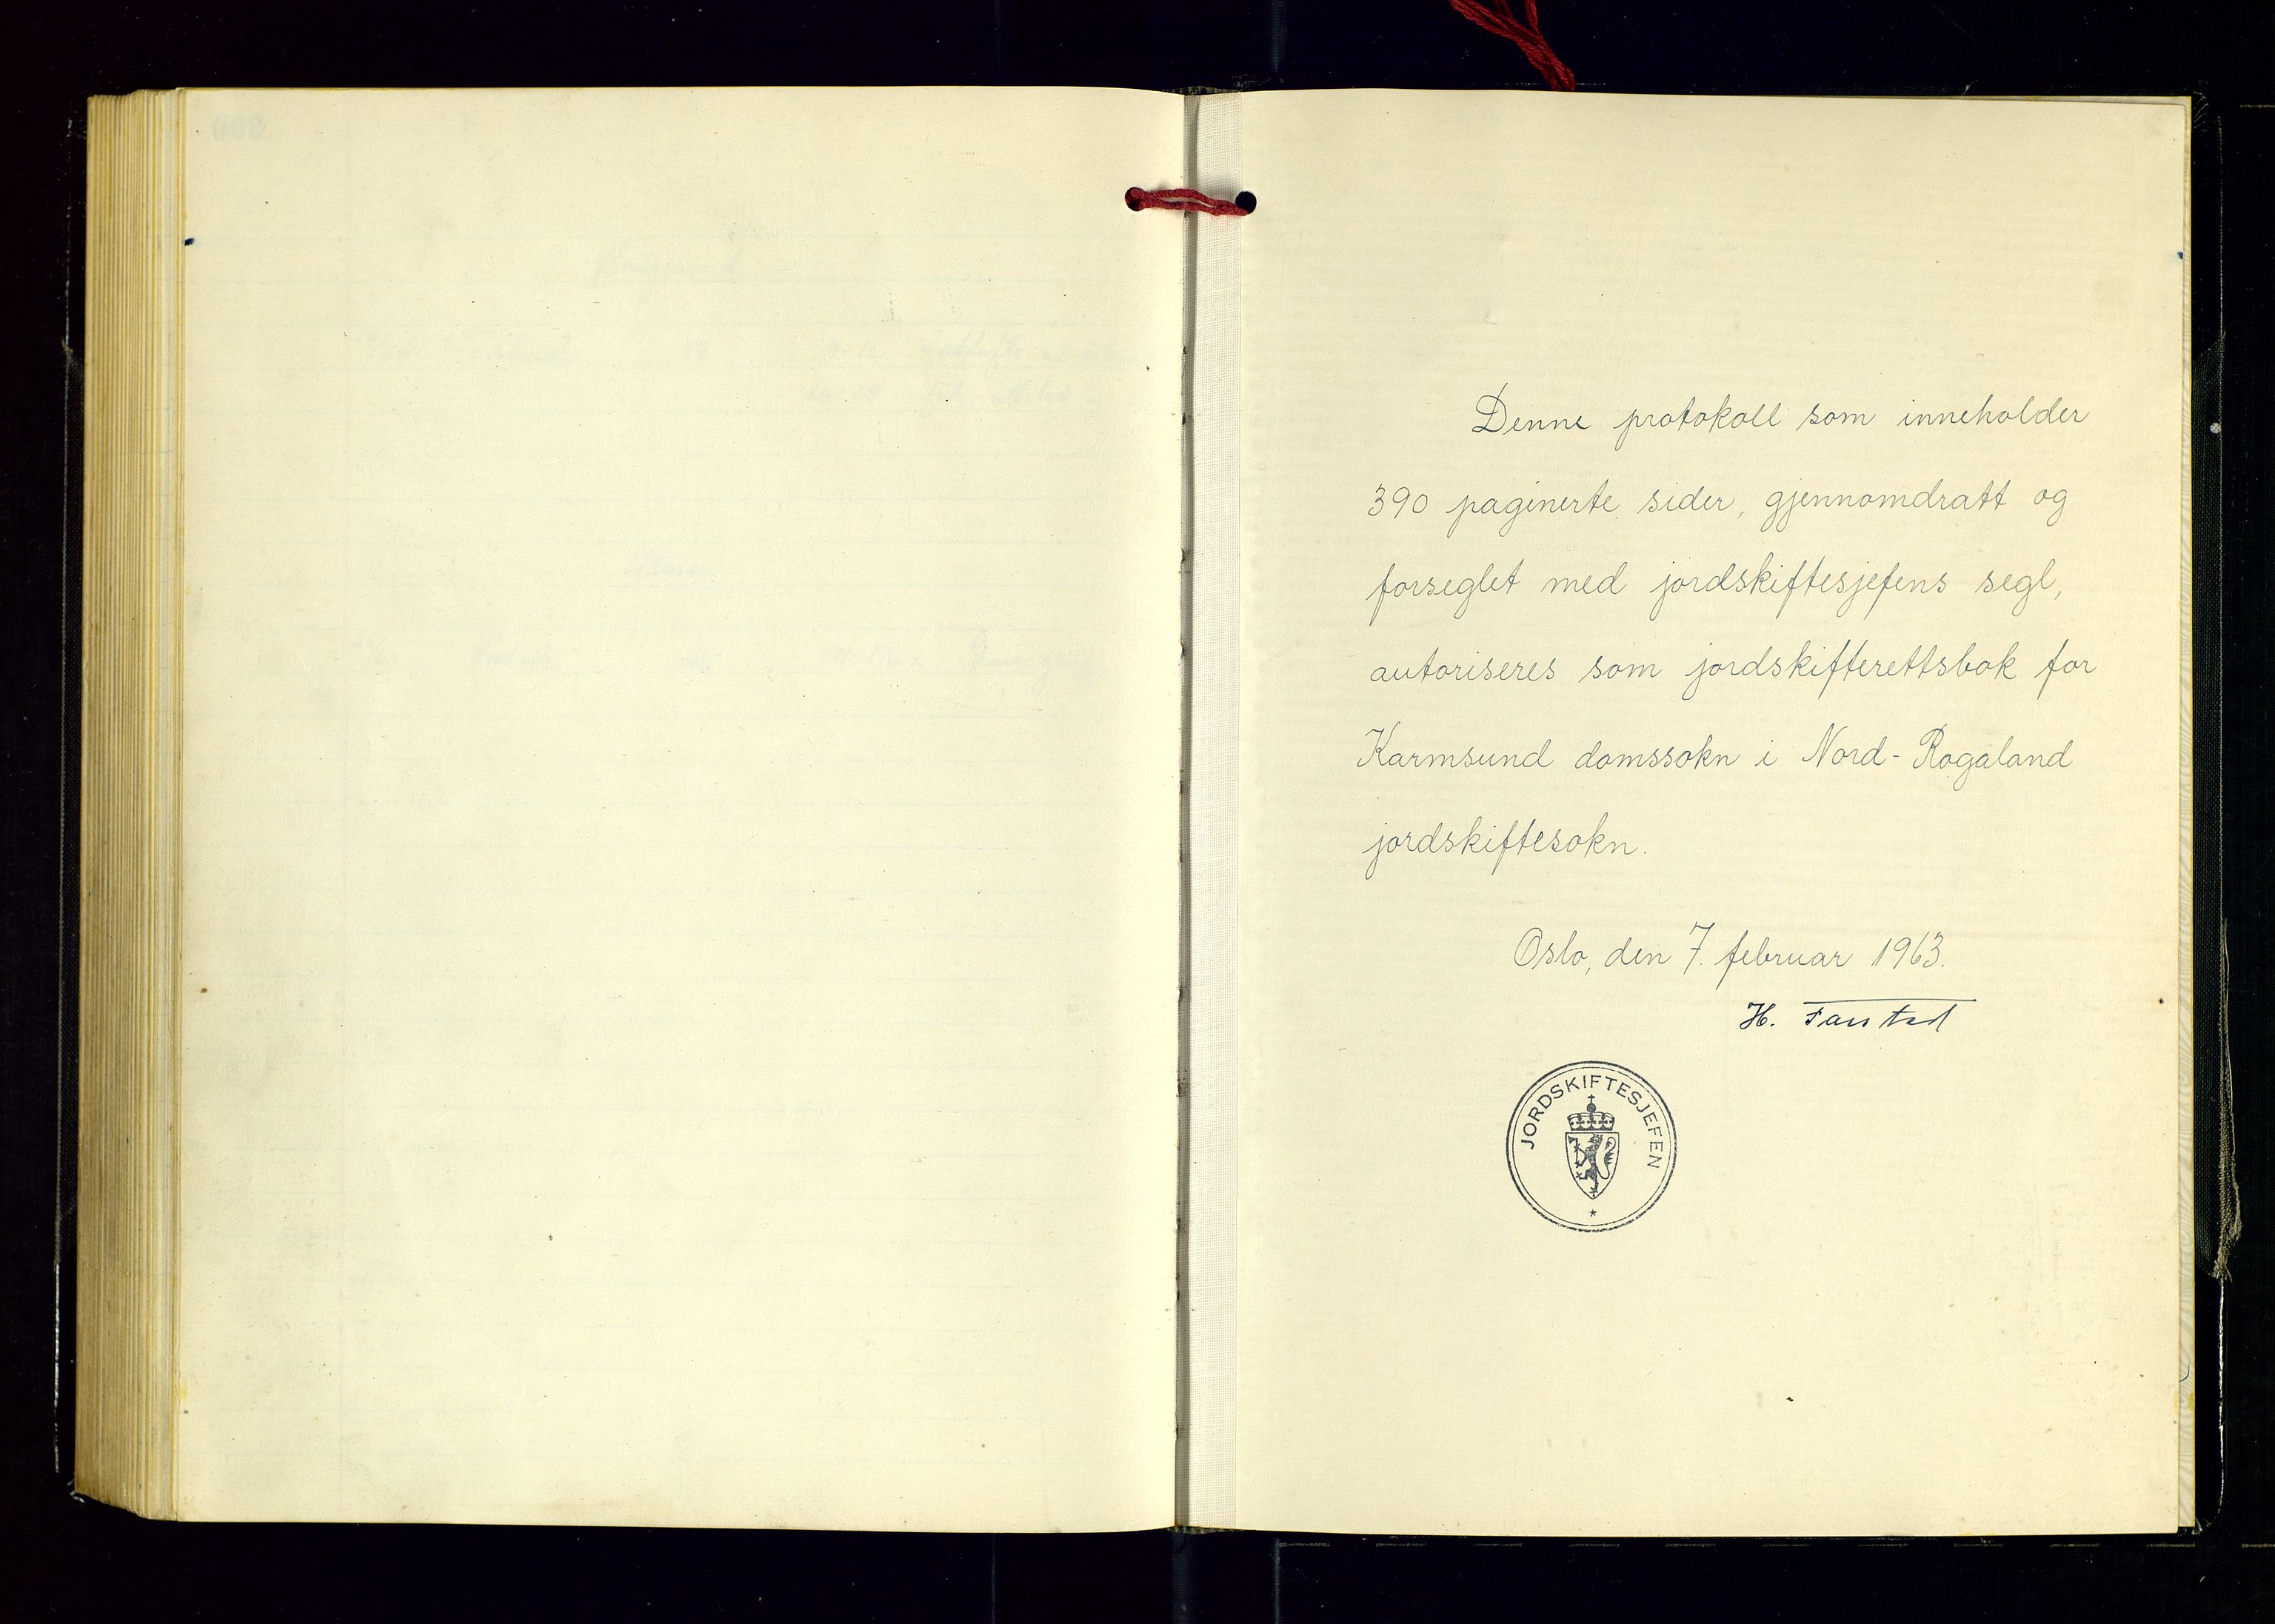 Denne protokoll som inneholder
390 paginerte sider, gjennomdratt og
forseglet med jordskiftesjefens segl,
autoriseres som jordskifterettsbok for
Karmsund domssokn i Nord-Rogaland
jordskiftesokn.
Oslo, den 7. februar 1963.
H.
JORDSKIFTESJEFEN